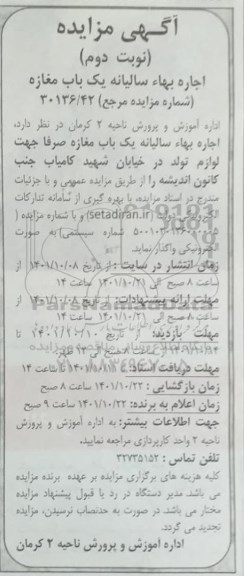 آگهی مزایده
(نوبت دوم)
اجاره بهاء سالیانه یک باب مغازه
(شماره مزایده مرجع) ۳۰۱۳۶/۴۲
اداره آموزش و پرورش ناحیه ۲ کرمان در نظر دارد،
اجاره بهاء سالیانه یک باب مغازه صرفا جهت
لوازم تولد در خیابان شهید کامیاب جنب
کانون اندیشه را از طریق مزایده عمومی و با جزئیات
مندرج در اسناد مزایده، با بهره گیری از سامانه تدارکات
(setadiran.ir) و با شماره مزایده (
شماره سیستمی) به صورت
الکترونیکی واگذار نماید.
زمان انتشار در سایت : از تاریخ ۱۴۰۱/۱۰/۰۸ از
ساعت ۸ صبح الی ۱۴۰۱/۱۰/۲۱ ساعت ۱۴
مهلت ارائه پیشنهادات: از تاریخ ۱۴۰۱/۱۰/۰۸ از
ساعت ۸ صبح الی ۱۴۰۱/۱۰/۲۱ ساعت ۱۴
مهلت بازدید: از تاریخ تا
از ساعت ۸ صبح الی ۱۲ ظهر
مهلت دریافت اسناد: تا ساعت ۱۴
زمان بازگشایی : ۱۴۰۱/۱۰/۲۲ ساعت ۸ صبح
زمان اعلام به برنده: ۱۴۰۱/۱۰/۲۲ ساعت ۹ صبح
جهت اطلاعات بیشتر: به اداره آموزش و پرورش
ناحیه ۲ واحد کارپردازی مراجعه نمایید.
تلفن تماس : ۳۲۷۳۵۱۵۲
کلیه هزینه های برگزاری مزایده بر عهده برنده مزایده
می باشد. مدیر دستگاه در رد یا قبول پیشنهاد مزایده
مختار می باشد. در صورت به حدنصاب نرسیدن، مزایده
تجدید می گردد.
اداره آموزش و پرورش ناحیه ۲ کرمان